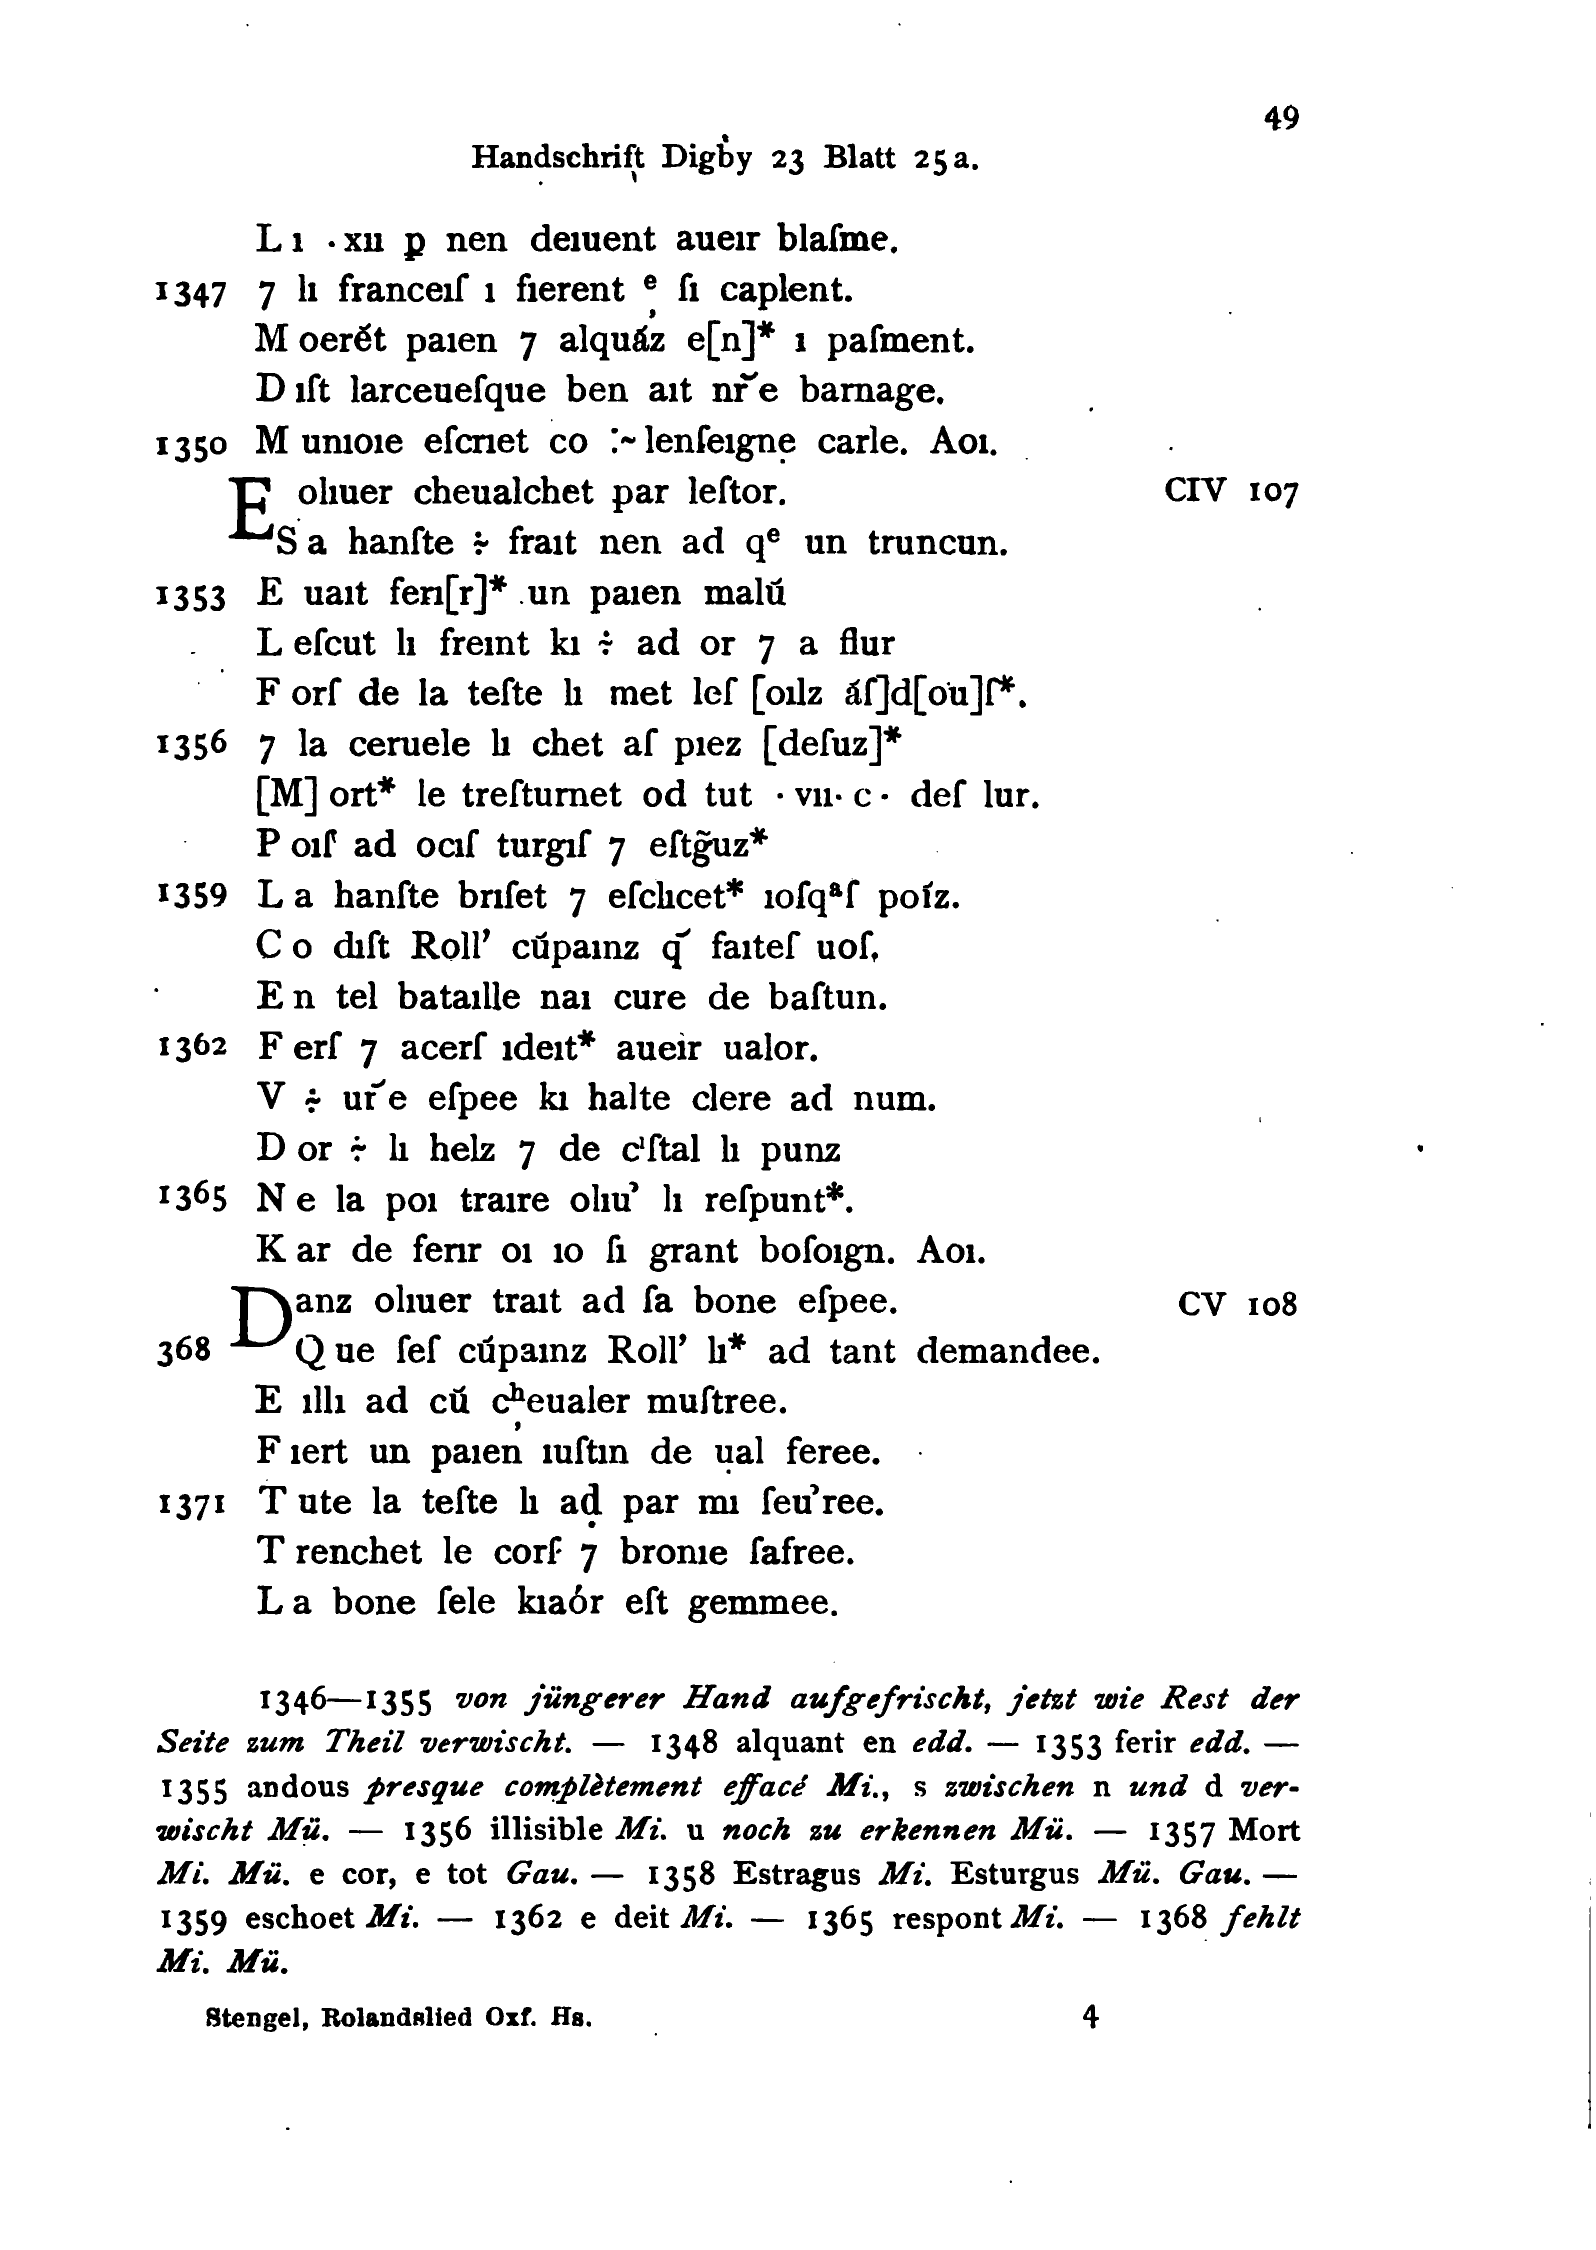 49
Handschrift Digby 23 Blatt 25a.
L ı · xıı ꝑ nen deıuent aueır blaſme.
1347 7 lı franceıſ ı fıerent ͤ ſı caplent.
M oerе̋t paıen 7 alqua̋z e[n]* ı paſment.
D ıſt larceueſque ben aıt nr̃e barnage.
1350 M unıoıe eſcrıet co :~ lenſeıgnẹ carle. Aoı.
E olıuer cheualchet par leſtor. CIV 107
S a hanſte ÷ fraıt nen ad qͤ un truncun.
1353 E uaıt ferı[r]* un paıen malű
L eſcut lı freınt kı ÷ ad or 7 a flur
F orſ de la teſte lı met leſ [oılz a̋ſ]d[ou]ſ*.
1356 7 la ceruele lı chet aſ pıez [deſuz]*
[M] ort* le treſturnet od tut · vıı· c · deſ lur.
P oıſ ad ocıſ turgıſ 7 eſtg̃uz*
1359 L a hanſte brıſet 7 eſclıcet* ıoſqᵃſ poíz.
C o dıſt Roll’ cűpaınz q̃ faıteſ uoſ,
E n tel bataılle naı cure de baſtun.
1362 F erſ 7 acerſ ıdeıt* aueir ualor.
V ÷ ur̃e eſpee kı halte clere ad num.
D or ÷ lı helz 7 de cꞌſtal lı punz
1365 N e la poı traıre olıu’ lı reſpunt*.
K ar de ferır oı ıo ſı grant boſoıgn. Aoı.
Danz olıuer traıt ad ſa bone eſpee. CV 108
368 Q ue ſeſ cűpaınz Roll’ lı* ad tant demandee.
E ıllı ad cű cʰeualer muſtree.
F ıert un paıen’ ıuſtın de ụal feree.
1371 T ute la teſte lı aḍ par mı ſeu’ree.
T renchet le corſ 7 bronıe ſafree.
L a bone ſele kıaór eſt gemmee.
1346—1355 von jüngerer Hand aufgefrischt, jetzt wie Rest der
Seite zum Theil verwischt. — 1348 alquant en edd. — 1353 ferir edd. —
1355 andous presque complètement effacé Mi., s zwischen n und d ver-
wischt Mü. — 1356 illisible Mi. u noch zu erkennen Mü. — 1357 Mort
Mi. Mü. e cor, e tot Gau. — 1358 Estragus Mi. Esturgus Mü. Gau. —
1359 eschoet Mi. — 1362 e deit Mi. — 1365 respont Mi. — 1368 fehlt
Mi. Mü.
Stengel, Rolandslied Oxf. Hs. 4